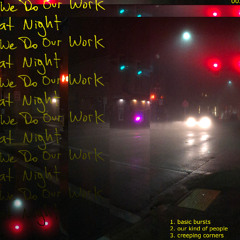 We Do Our Work
at Night
We Do Our Work
at Night
We Do Our Work
at Night
We Do Our Work
at Night
We Do Our Work
at Night
We Do Our Work
1. basic bursts
2. our kind of people
3. creeping corners